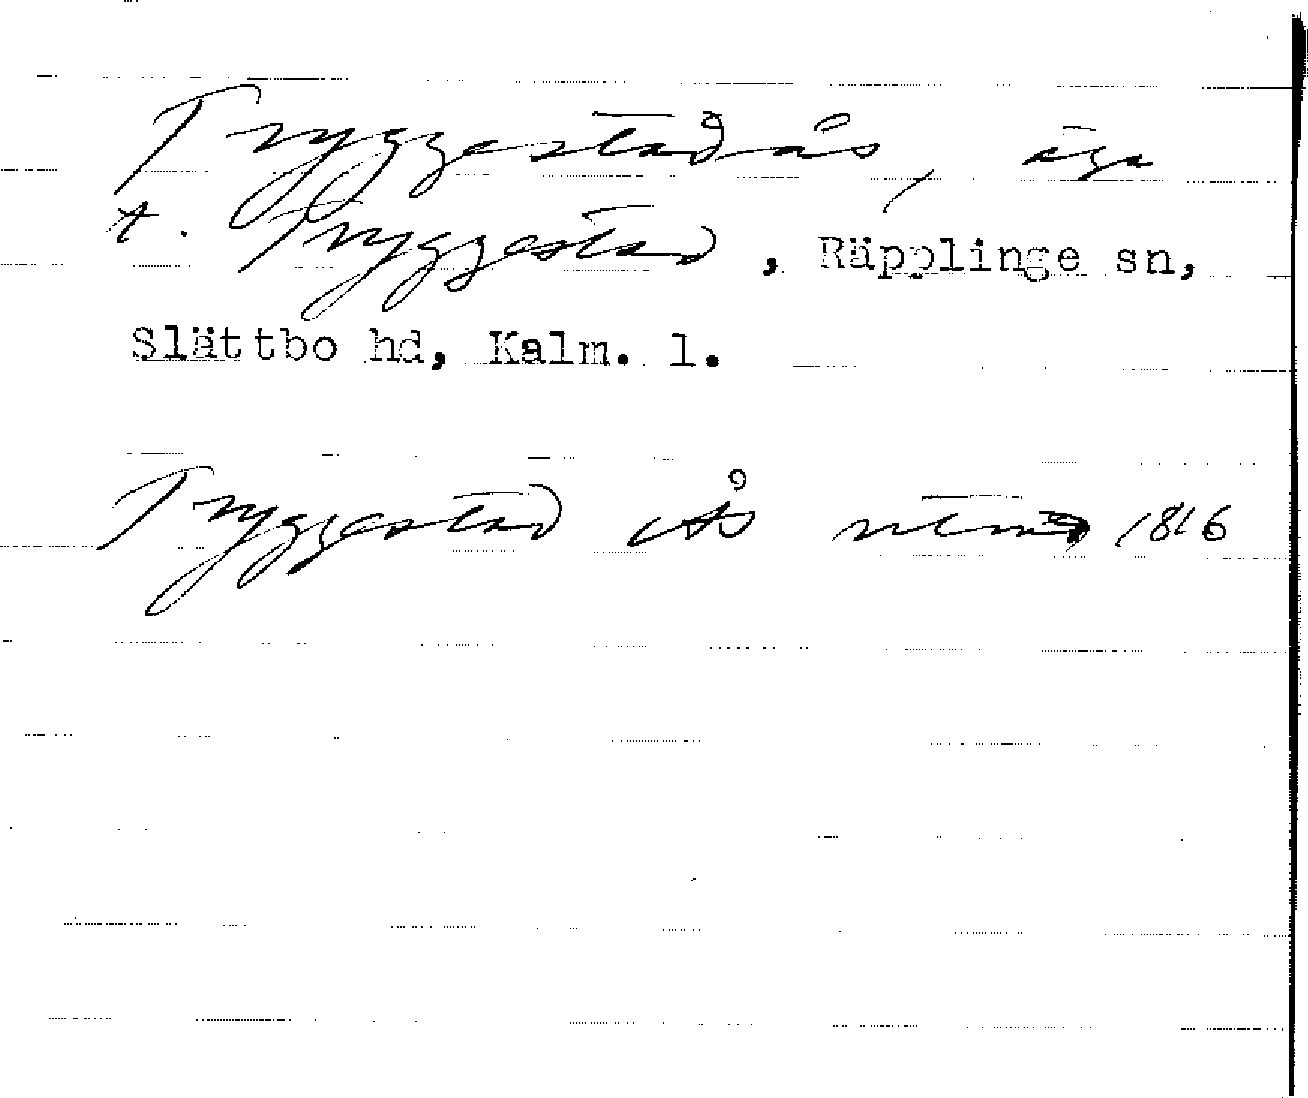 Tryggestadås, äga
t. Tryggestad, Räpplinge sn,
Slättbo hd, Kalm. l.
Tryggestad Ås utm 1816